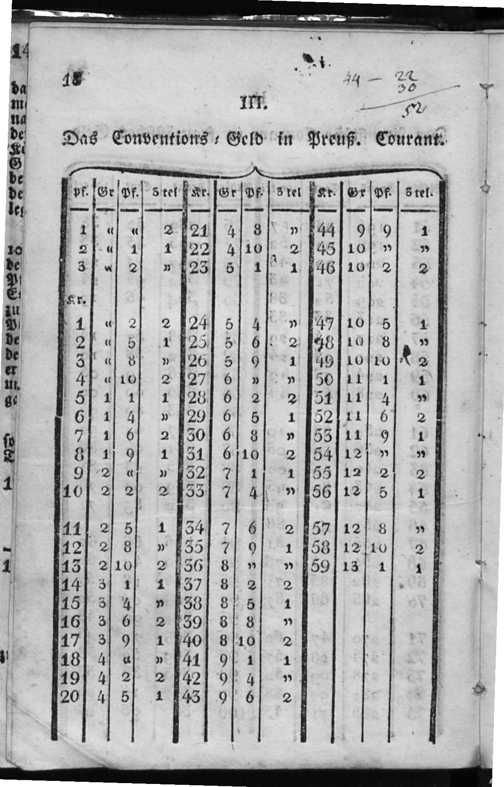 18
44 — 22
30
52
III.
Das Conventions-Geld in Preuß. Courant.
pf. Gr Pf. 3tel Kr. Gr Pf. 3tel Kr. Gr Pf. 3tel.
1 „ „ 2 21 4 8 „ 44 9 9 1
2 „ 1 1 22 4 10 2 45 10 „ „
3 „ 2 „ 23 5 1 1 46 10 2 2
Kr.
1 „ 2 2 24 5 4 „ 47 10 5 1
2 „ 5 1 25 5 6 2 48 10 8 „
3 „ 8 „ 26 5 9 1 49 10 10 2
4 „ 10 2 27 6 „ „ 50 11 1 1
5 1 1 1 28 6 2 2 51 11 4 „
6 1 4 „ 29 6 5 1 52 11 6 2
7 1 6 2 30 6 8 „ 53 11 9 1
8 1 9 1 31 6 10 2 54 12 „ „
9 2 „ „ 32 7 1 1 55 12 2 2
10 2 2 2 33 7 4 „ 56 12 5 1
11 2 5 1 34 7 6 2 57 12 8 „
12 2 8 „ 35 7 9 1 58 12 10 2
13 2 10 2 36 8 „ „ 59 13 1 1
14 3 1 1 37 8 2 2
15 3 4 „ 38 8 5 1
16 3 6 2 39 8 8 „
17 3 9 1 40 8 10 2
18 4 „ „ 41 9 1 1
19 4 2 2 42 9 4 „
20 4 5 1 43 9 6 2